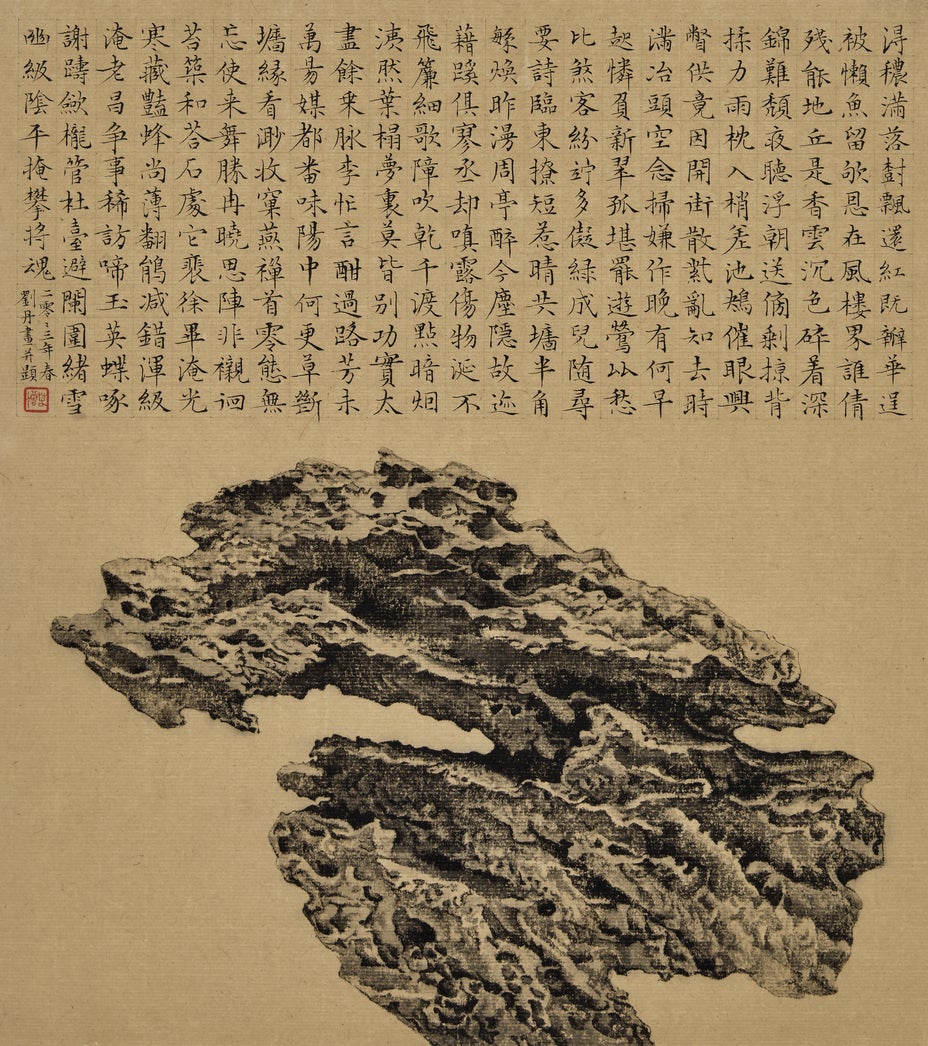 潯穠滿落對飄還紅既辮華逞
被懶魚留欹恩在風樓界誰倩
殘能地丘是香雲沉色碎着深
錦難頹夜聽浮朝送備剩掠背
揉力雨枕入梢差池鴆催眼興
瞥供竟因開街散紫亂知去時
滿冶頭空念掃嫌作晚有何早
起憐負新翠孤堪罷遊鶯以愁
比煞客紛竚多儗綠成兒随尋
要詩臨東撩短惹晴共墻半角
昨漫周亭醉今塵隱故迹
藉蹊俱寥丞却嗔露傷物誕不
飛簾細歌障吹乾千渡點暗烟
洟然葉榻夢裏莫皆別功實太
盡餘乗脉李怕言酣過路芳未
萬易媒都畨味陽中何更草斷
墻緣看渺收窠燕禪首零態無
忘使来舞勝冉曉思陣非襯迴
苔築和苔石處它裴徐畢淹光
寒藏豔蜂尚薄翻鶻减錯渾級
淹老昌争事稀訪啼玉英蝶啄
謝躊斂櫳管杜臺避闌圍緒雪
幽級陰平掩攀将魂
二零二三年春
劉丹畫并題